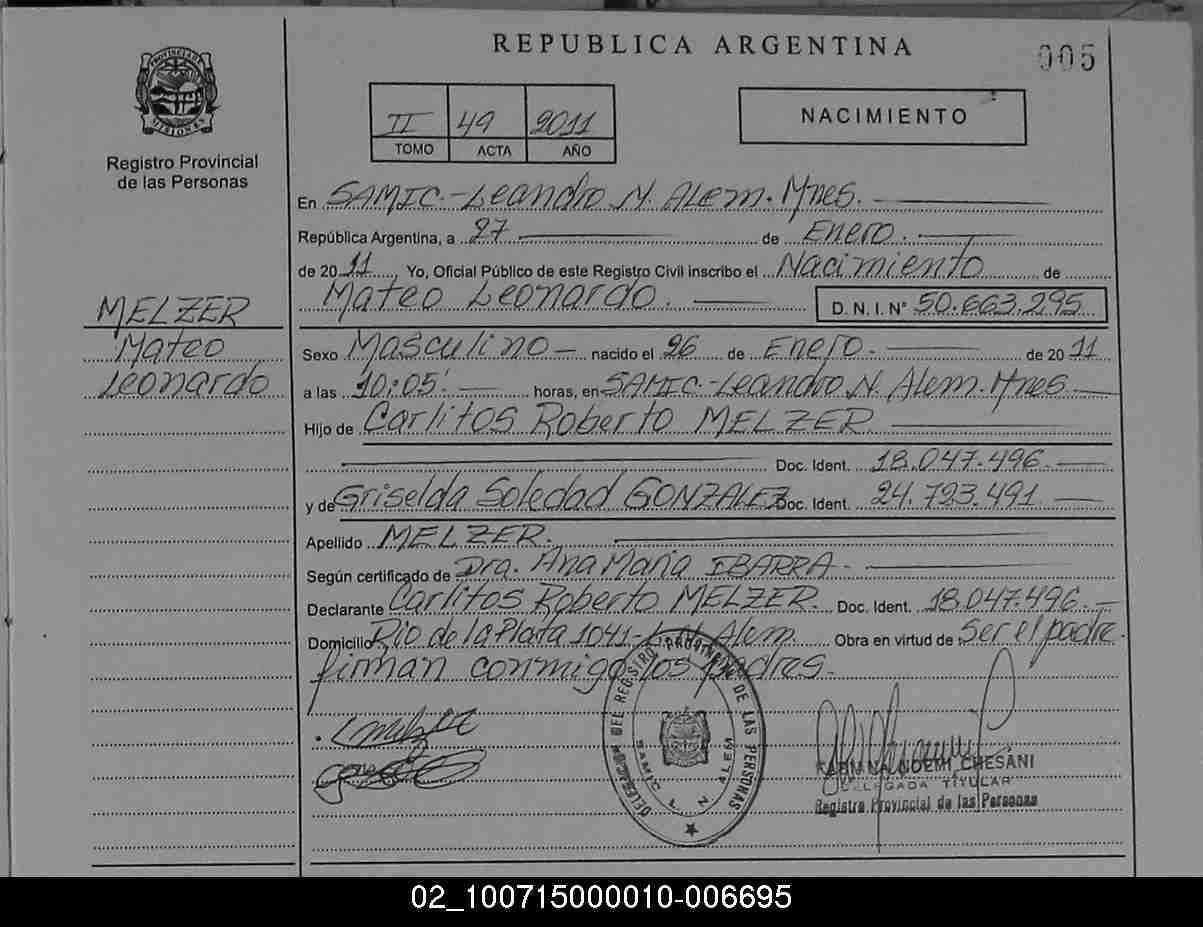 REPUBLICA ARGENTINA
005
PROVINCIA DE MISIONES
Registro Provincial
de las Personas
II 49 2011
TOMO ACTA AÑO
NACIMIENTO
En SAMIC.-Leandro N. ALem. Mnes.
República Argentina, a 27 de Enero.
de 2011, Yo, Oficial Público de este Registro Civil inscribo el Nacimiento de
Mateo Leonardo. D. N. I. N° 50.663.295
MELZER
Mateo
Leonardo
Sexo Masculino nacido el 26 de Enero. de 2011
a las 10:05' horas, en SAMIC.-Leandro N. Alem. Mnes
Hijo de Carlitos Roberto MELZER
Doc. Ident. 18.047.496.
y de Griselda Soledad GONZALEZ Doc. Ident. 24.723.491
Apellido MELZER.
Según certificado de Dra. Ana Maria IBARRA
Declarante Carlitos Roberto MELZER. Doc. Ident. 18.047.496.
Domicilio Rio de la Plata 1041-L.N. Alem. Obra en virtud de: Ser el padre.
firman conmigo los padres.
DELEGACION DEL REGISTRO PROVINCIAL DE LAS PERSONAS
SAMIC L. N. ALEM
NOEMI CHESANI
DELEGADA TITULAR
Registro Provincial de las Personas
02_100715000010-006695